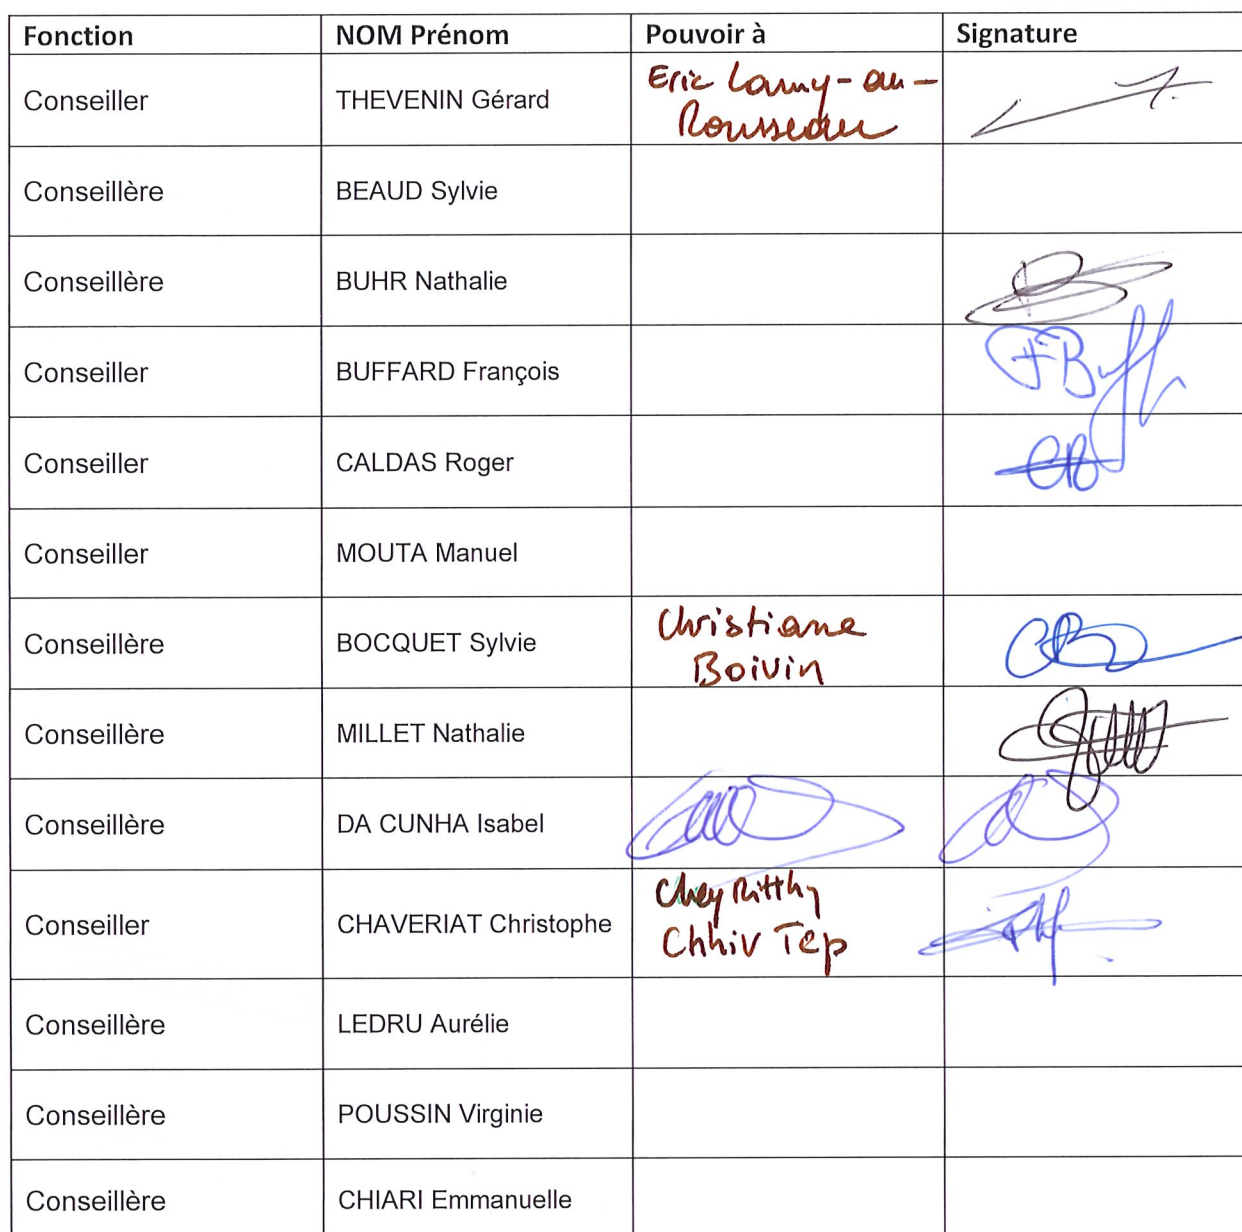 Fonction NOM Prénom Pouvoir à Signature
Conseiller THEVENIN Gérard Eric Lamy-au-
Rousseau
Conseillère BEAUD Sylvie
Conseillère BUHR Nathalie
Conseiller BUFFARD François
Conseiller CALDAS Roger
Conseiller MOUTA Manuel
Conseillère BOCQUET Sylvie Christiane
Boivin
Conseillère MILLET Nathalie
Conseillère DA CUNHA Isabel
Conseiller CHAVERIAT Christophe Chey Ritthy
Chhiv Tep
Conseillère LEDRU Aurélie
Conseillère POUSSIN Virginie
Conseillère CHIARI Emmanuelle